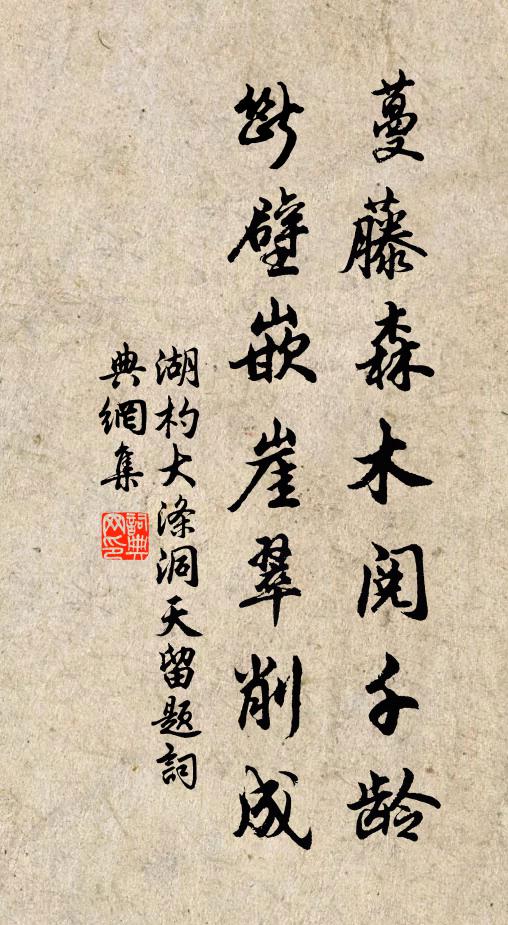 蔓藤森木阅千龄
断壁嵌崖翠削成
湖杓大涤洞天留题词
典網集
詞典網印